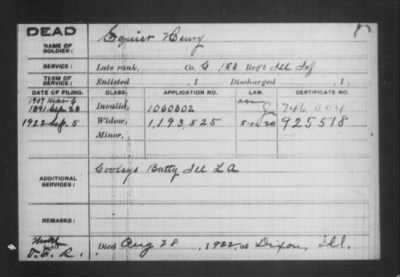 DEAD
NAME OF SOLDIER: Squier Henry
SERVICE: Late rank, Co. G, 153 Reg't Ill Inf
TERM OF SERVICE: Enlisted , 1 Discharged , 1
DATE OF FILING. CLASS. APPLICATION NO. LAW. CERTIFICATE NO.
1907 Mar 6
1891 Invalid, 1060602 746
1922 Sep. 5 Widow, 1,193,525 925518
Minor,
ADDITIONAL SERVICES: Cooleys Batty Ill L A
REMARKS:
Died Aug 28, 1922, at Dixon, Ill.